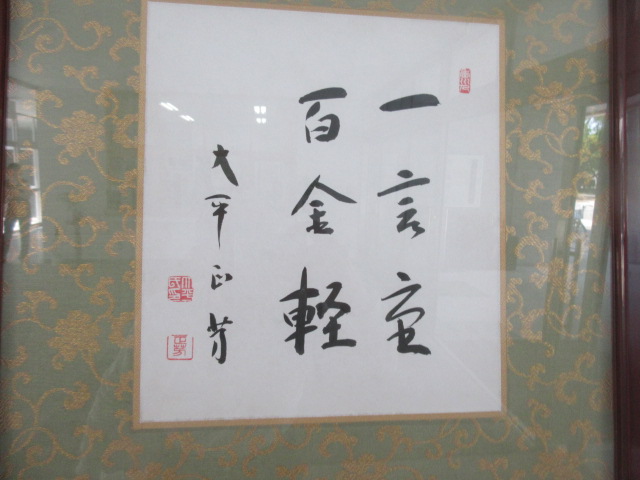 一言重
百金軽
大平正芳